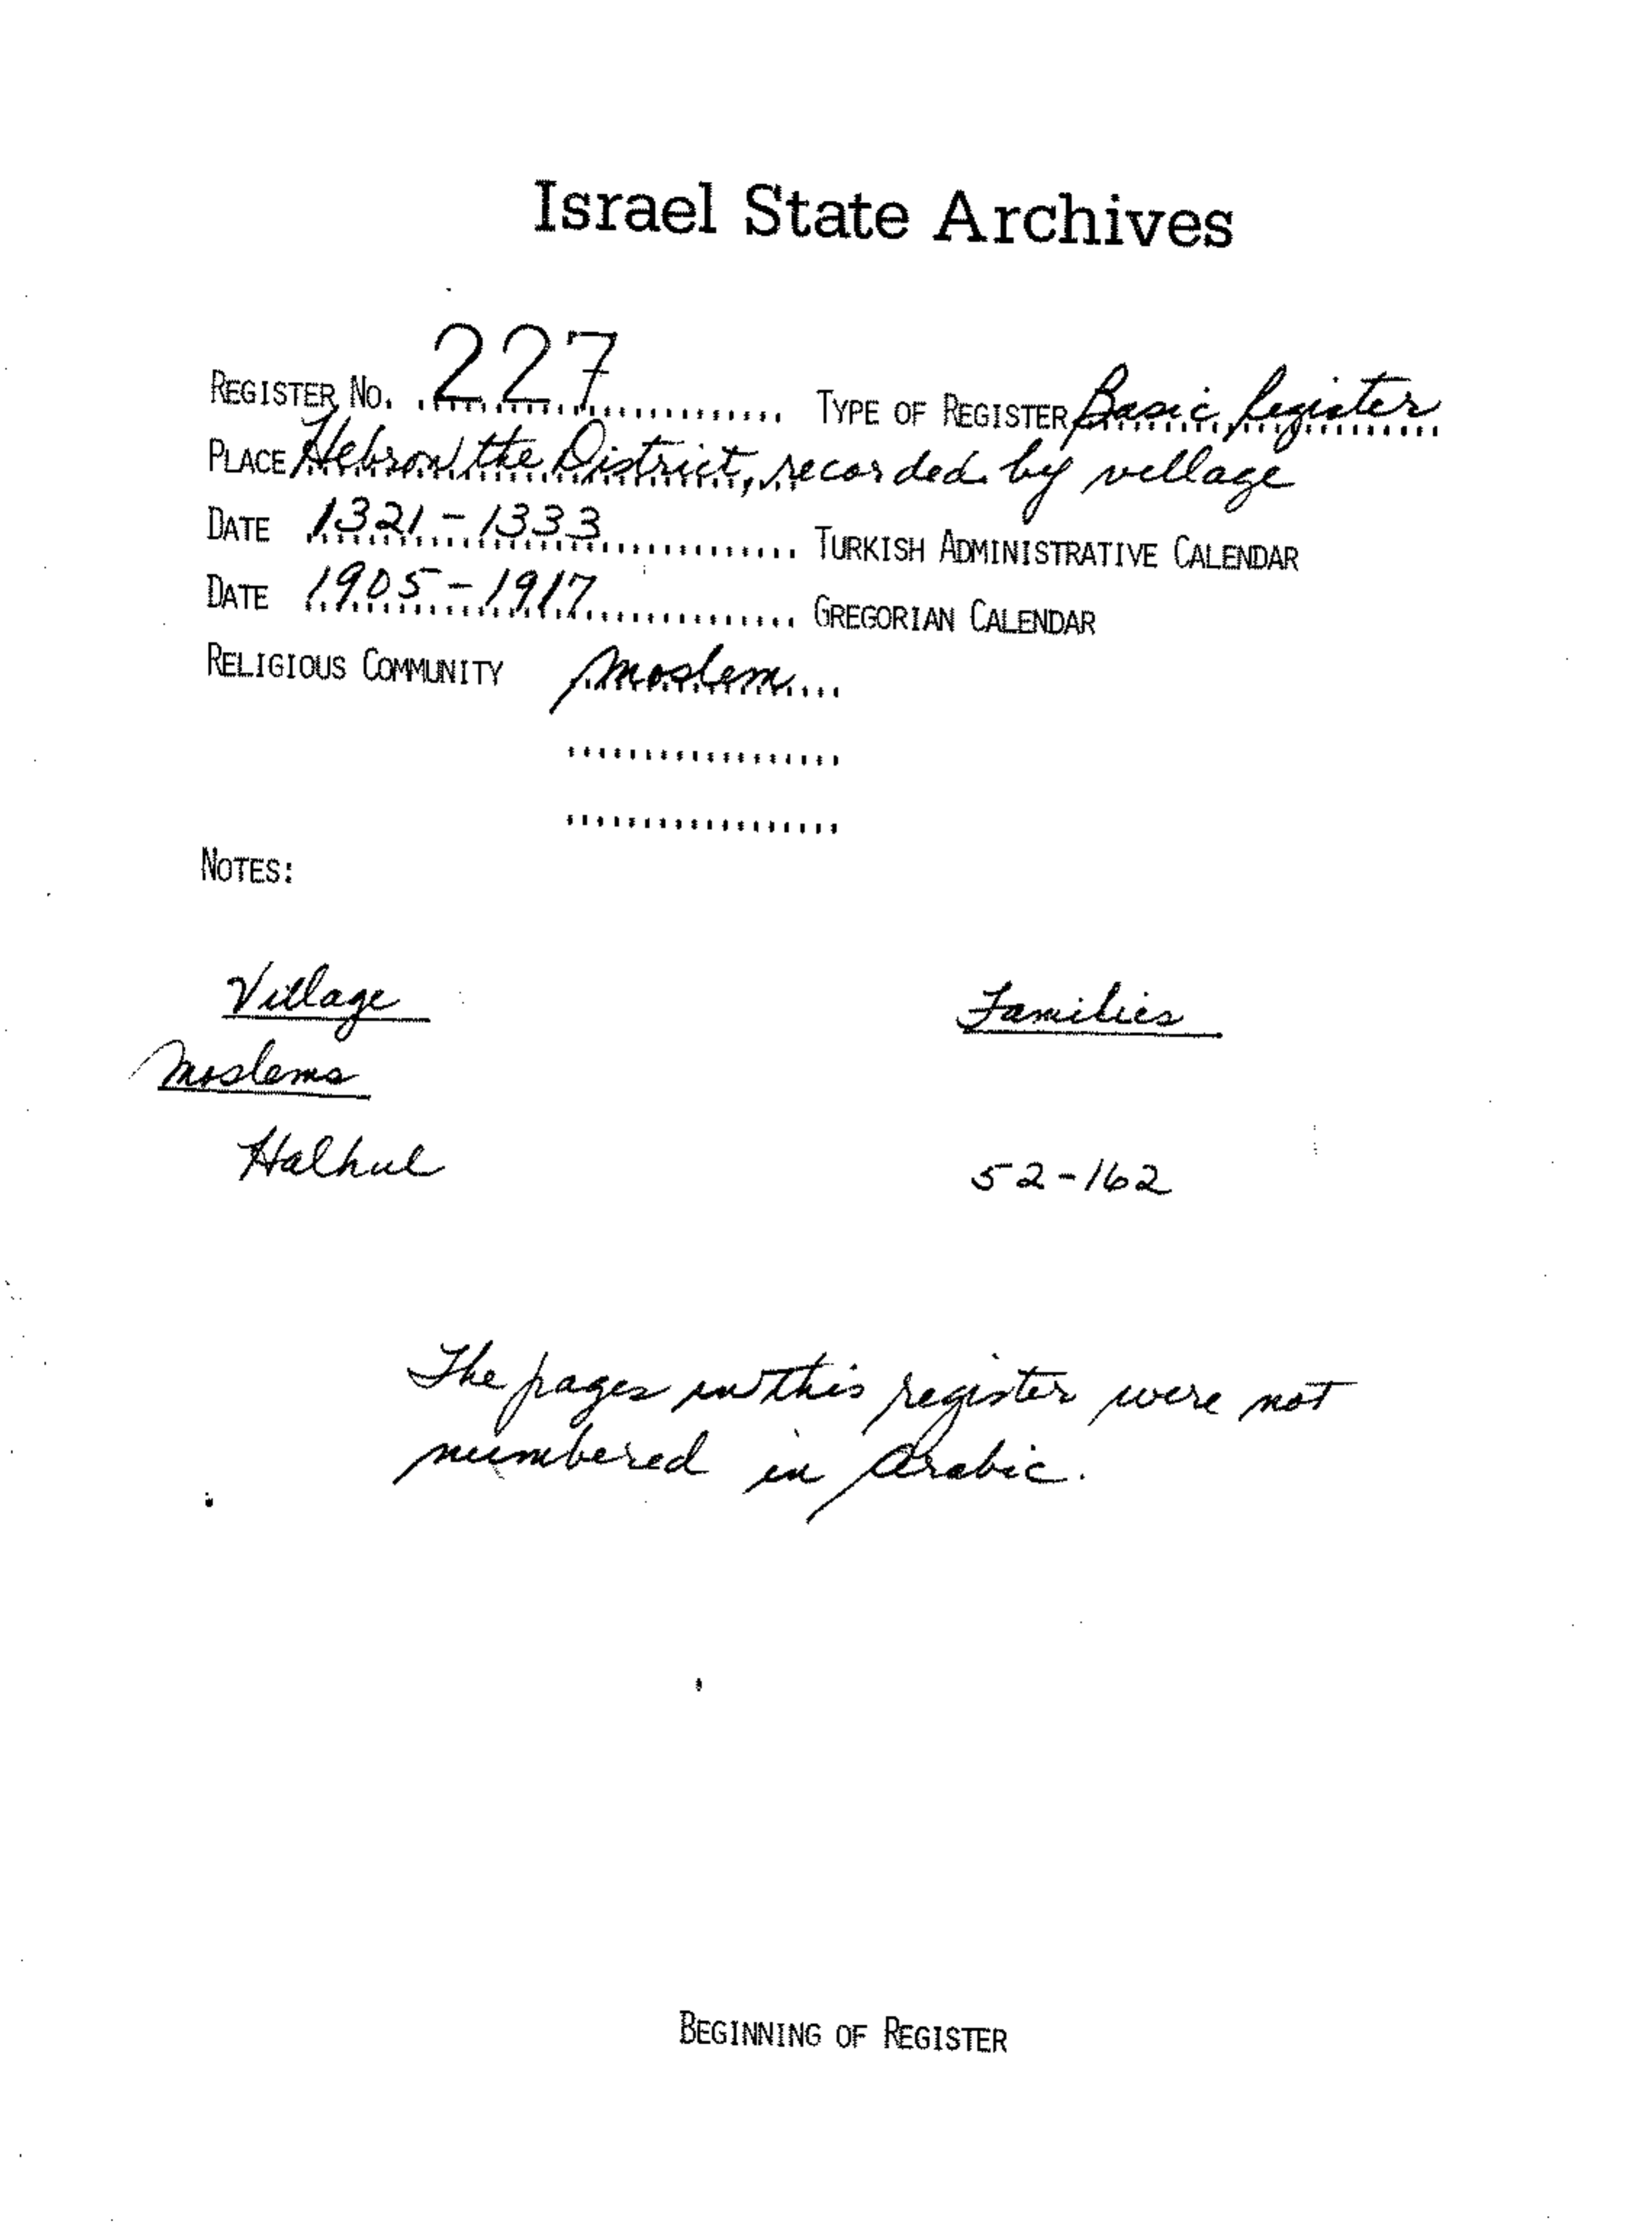 Israel State Archives
REGISTER NO. 227 TYPE OF REGISTER Basic Register
PLACE Hebron, the District, recorded by village
DATE 1321-1333 TURKISH ADMINISTRATIVE CALENDAR
DATE 1905-1917 GREGORIAN CALENDAR
RELIGIOUS COMMUNITY Moslem
NOTES:
Village Families
Moslems
Halhul 52-162
The pages in this register were not
numbered in Arabic.
BEGINNING OF REGISTER